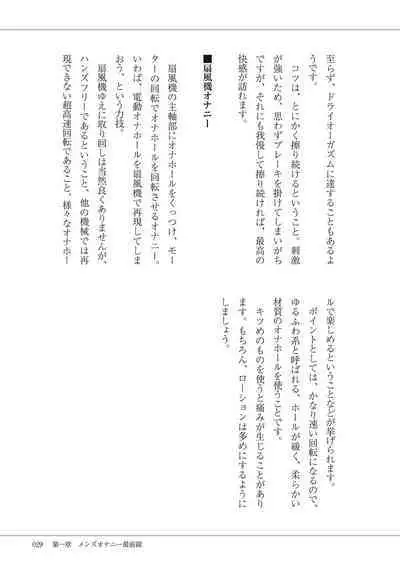 至らず、ドライオーガズムに達することもあるよ
うです。
コツは、とにかく擦り続けるということ。刺激
が強いため、思わずブレーキを掛けてしまいがち
ですが、それにも我慢して擦り続ければ、最高の
快感が訪れます。
■扇風機オナニー
扇風機の主軸部にオナホールをくっつけ、モー
ターの回転でオナホールを回転させるオナニー。
いわば、電動オナホールを扇風機で再現してしま
おう、という力技。
扇風機ゆえに取り回しは当然良くありませんが、
ハンズフリーであるということ、他の機械では再
現できない超高速回転であること、様々なオナホー
ルで楽しめるということなどが挙げられます。
ポイントとしては、かなり速い回転になるので、
ゆるふわ系と呼ばれる、ホールが緩く、柔らかい
材質のオナホールを使うことです。
キツめのものを使うと痛みが生じることがあり
ます。もちろん、ローションは多めにするように
しましょう。
029 第一章 メンズオナニー最前線